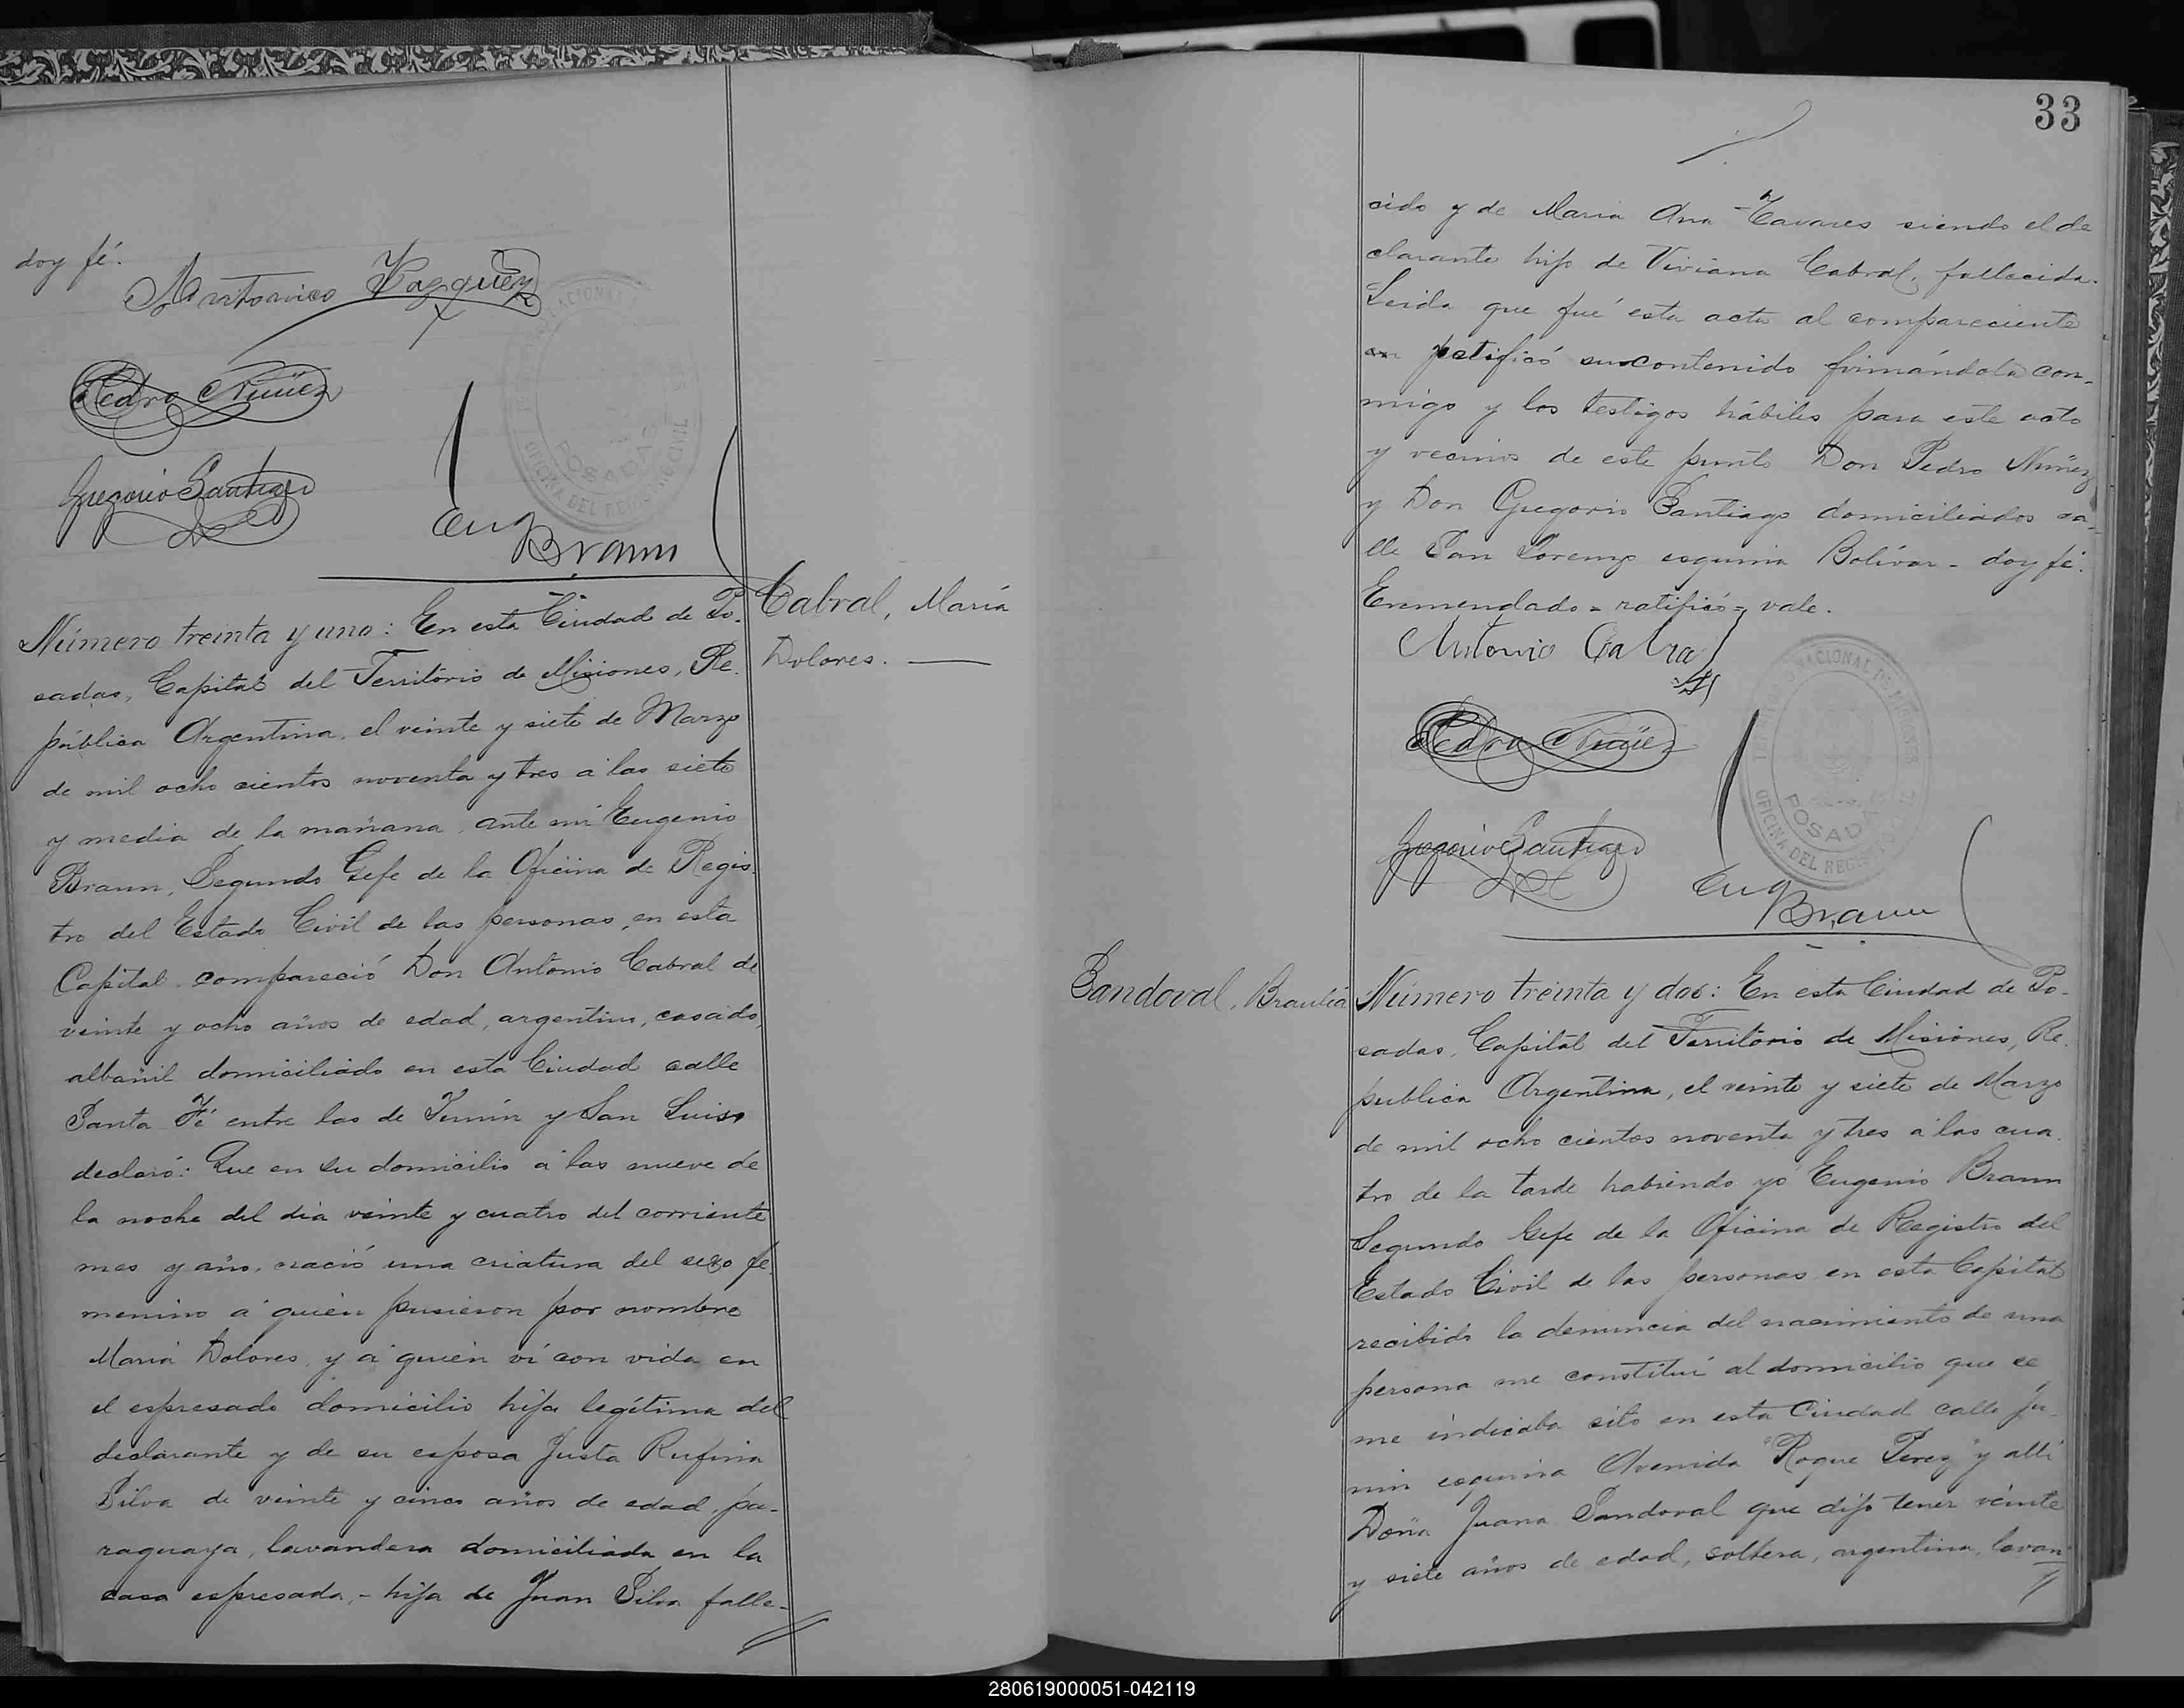 doy fé.
Antonico Vazquez
Pedro Núñez
Gregorio Santiago
Eug Braun
POSADAS
OFICINA DEL REGISTRO CIVIL
Cabral, María
Dolores.
Número treinta y uno: En esta Ciudad de Po-
sadas, Capital del Territorio de Misiones, Re-
pública Argentina, el veinte y siete de Marzo
de mil ocho cientos noventa y tres á las siete
y media de la mañana, ante mi Eugenio
Braun, Segundo Gefe de la Oficina de Regis-
tro del Estado Civil de las personas, en esta
Capital compareció Don Antonio Cabral de
veinte y ocho años de edad, argentino, casado,
albañil domiciliado en esta Ciudad calle
Santa Fé entre las de Junín y San Luis,
declaró: Que en su domicilio á las nueve de
la noche del dia veinte y cuatro del corriente
mes y año, nació una criatura del sexo fe-
menino á quién pusieron por nombre
María Dolores, y á quién ví con vida en
el espresado domicilio hija legítima del
declarante y de su esposa Justa Rufina
Silva de veinte y cinco años de edad, pa-
raguaya, lavandera domiciliada en la
casa espresada,- hija de Juan Silva falle-
33
cido y de Maria Ana Tavares siendo el de
clarante hijo de Viviana Cabral, fallecida.
Leida que fué esta acta al compareciente
ratificó su contenido firmándola con-
migo y los testigos hábiles para este acto
y vecinos de este punto Don Pedro Núñez
y Don Gregorio Santiago domiciliados ca-
lle San Lorenzo esquina Bolívar - doy fé.
Enmendado = ratificó = vale.
Antonio Cabral
Pedro Núñez
Gregorio Santiago
Eug Braun
TERRITORIO NACIONAL DE MISIONES
POSADAS
OFICINA DEL REGISTRO CIVIL
Sandoval, Braulia
Número treinta y dos: En esta Ciudad de Po-
sadas, Capital del Territorio de Misiones, Re-
publica Argentina, el veinte y siete de Marzo
de mil ocho cientos noventa y tres á las cua-
tro de la tarde habiendo yo Eugenio Braun
Segundo Gefe de la Oficina de Registro del
Estado Civil de las personas en esta Capital
recibido la denuncia del nacimiento de una
persona me constituí al domicilio que se
me indicaba sito en esta Ciudad calle Ju-
nin esquina Avenida "Roque Perez" y alli
Doña Juana Sandoval que dijo tener veinte
y siete años de edad, soltera, argentina, lavan-
280619000051-042119